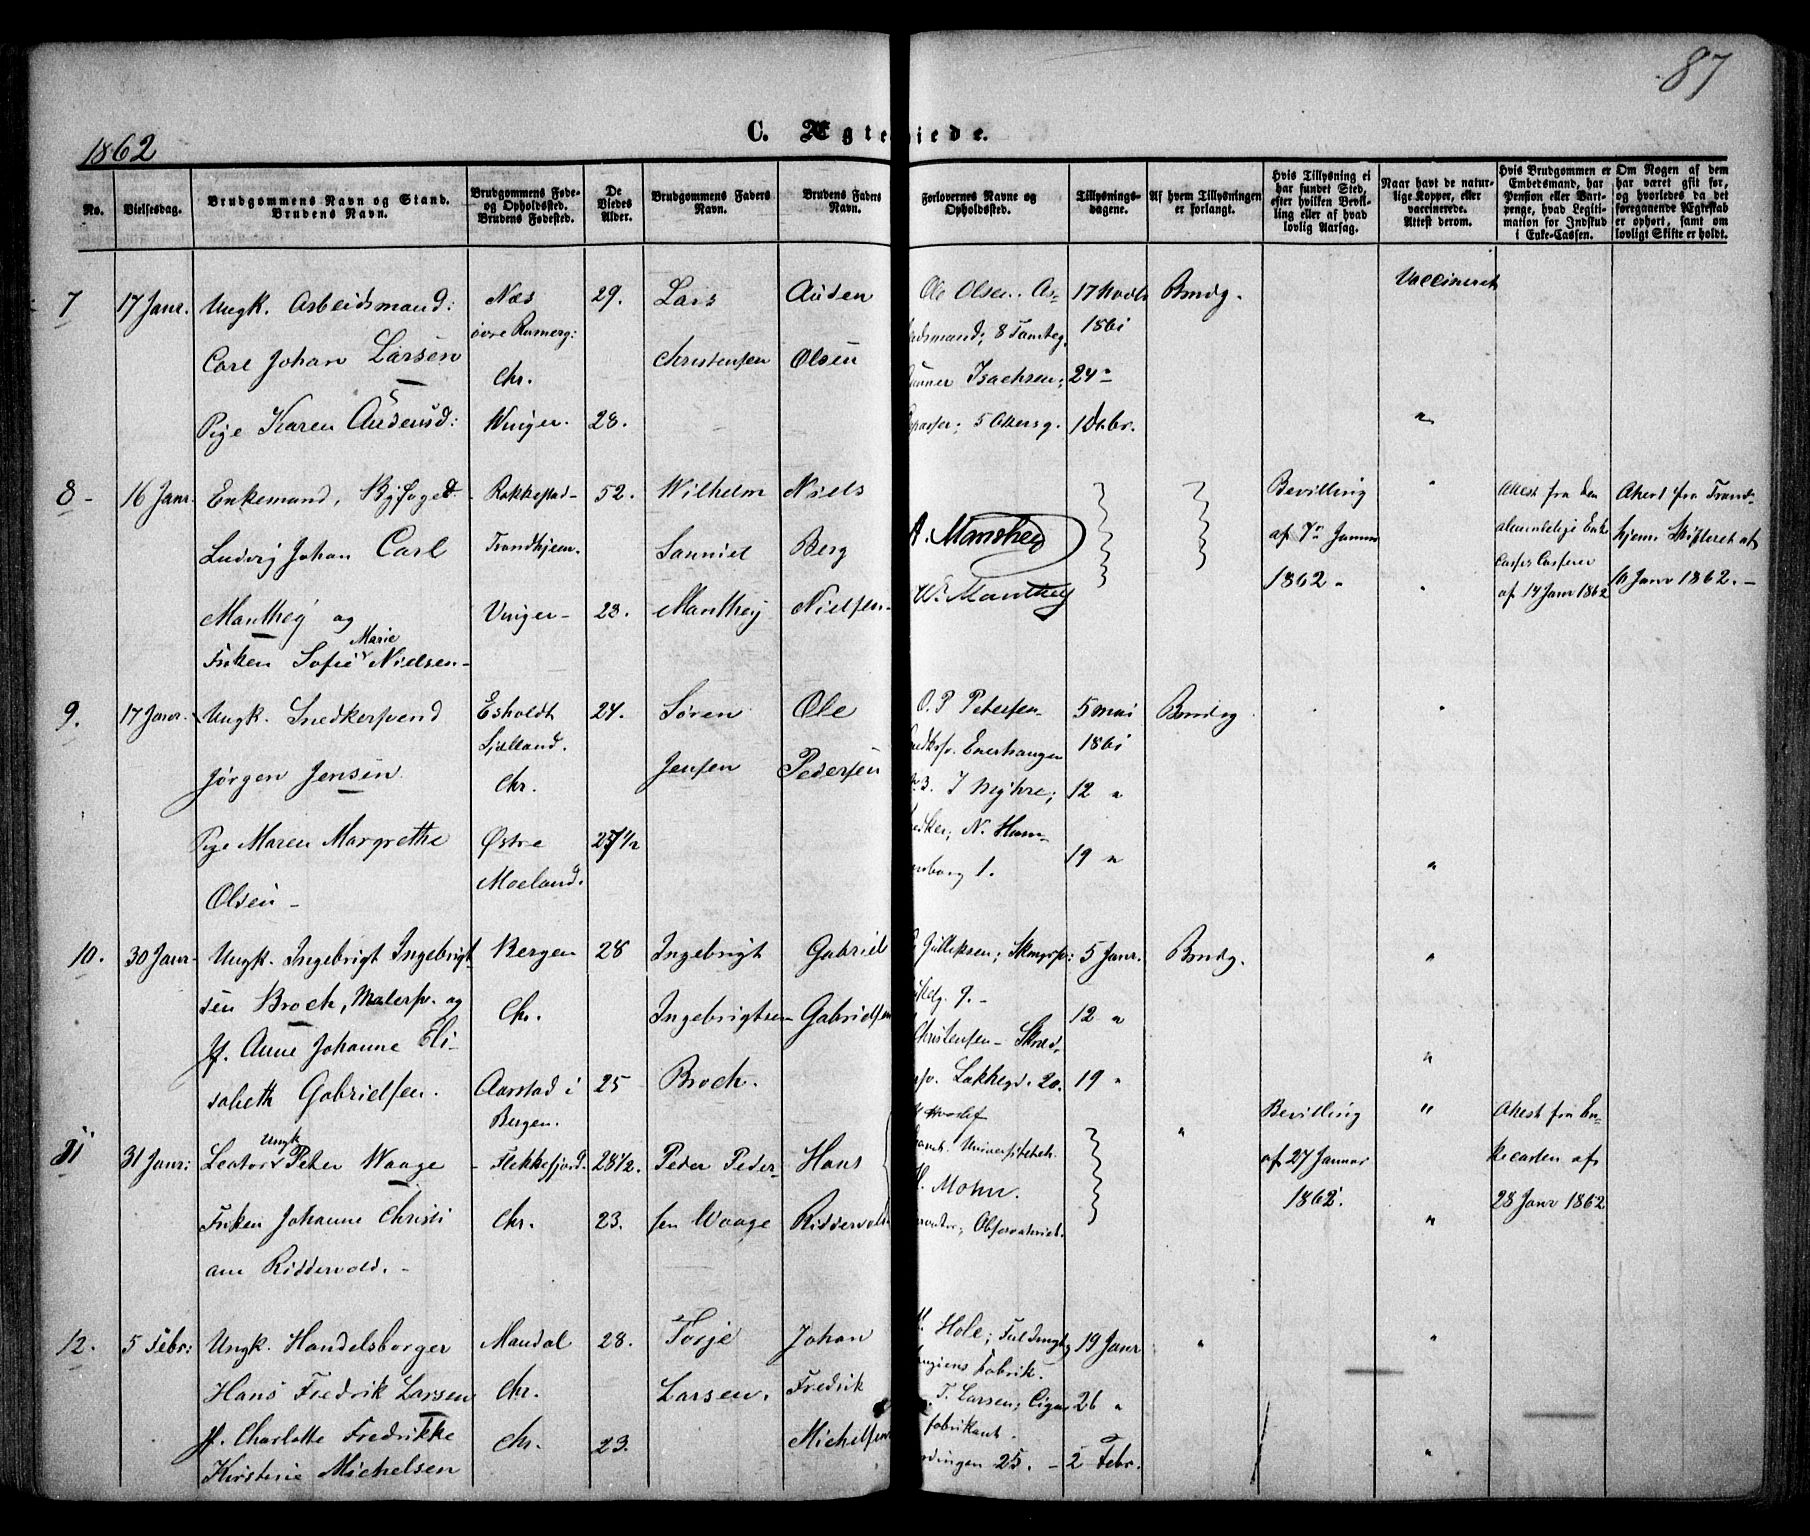 87
1862
C. Ægte
iede.
No.
Vielsesdag.
Brudgommens Navn og Stand.
Brudens Navn.
Brudgommens Føde-
og Opholdssted.
Brudens Fødested.
De
Viedes
Alder.
Brudgommens Faders
Navn.
Brudens Faders
Navn.
Forlovernes Navne og
Opholdssted.
Tillysnings-
dagene.
Af hvem Tillysningen
er forlangt.
Hvis Tillysning ei
har fundet Sted,
efter hvilken Bevil-
ling eller af hvad
lovlig Aarsag.
Naar havt de natur-
lige Kopper, eller
vaccinerede.
Attest derom.
Hvis Brudgommen er
Embedsmand, har
Pension eller Vart-
penge, hvad Legiti-
mation for Indskud
i Enke-Cassen.
Om Nogen af dem
har været gift før,
og hvorledes da det
foregaaende Ægteskab
er ophørt, samt om
lovligt Skifte er holdt.
7 17 Janr. Ungk. Arbeidsmand: Næs 29. Lars Auden Ole Olsen. Ar- 17 Novbr Brudg. Vaccineret
øvre Romerg: dsmand; 8 Tomteg. 1861
Carl Johan Larsen Chr. Christensen Olsen Gunner Isachsen; 24 "
Pige Karen Audensd: Vinger. 28. 5 Akersg. 1 Decbr. "
8 - 16 Janr. Enkemand, Byfoged Rakkestad - 52. Wilhelm Niels Bevilling " Attest fra den Attest fra Trond-
Ludvig Johan Carl Trondhjem. Samuel Berg A. Manthey af 7de Januar almindelige Enke hjems Skifteret af
1862. Casses Casserer 10 Janr 1862. -
Manthey og Vinger - 23. Manthey Nielsen W. Manthey " af 14 Janr 1862
Marie
Frøken Sofie Nielsen -
9. 17 Janr. Ungk. Snedkersvend Eskoldt 24. Søren Ole O. P. Petersen 5 Mai Brudg "
Sjælland. nedkersv. Enerhaugen 1861
Jørgen Jensen Chr. Jensen Pedersen 3. J 12 "
Pige Maren Margrethe Østre 27 1/2 edker; N. Ham- 19 " "
Moeland. ersborg 1.
Olsen -
10. 30 Janr. Ungk. Ingebrigt Ingebrigt- Bergen 28 Ingebrigt Gabriel Gulliksen; 5 Janr. Brudg. "
sen Broch, Malersv. og Chr. Ingebrigtsen Gabrielsen 9. - 12 "
Jf. Anne Johanne Eli- Christensen - Skræd- "
sabeth Gabrielsen. Aarstad i 25 Broch. sv. Lakkegd. 20. 19 "
Bergen. Bevilling " Attest fra En-
Ungk
11 31 Janr: Lector Peter Waage - Flekkefjord. 28 1/2. Peder Peder- Hans Universitetet. " af 27 Januar kecassen af
H. Mohn. 1862. 28 Janr 1862
Frøken Johanne Christi Chr. 23. sen Waage Riddervold Observatoriet. "
ane Riddervold. -
12. 5 Febr: Ungk. Handelsborger Mandal 28. Torje Johan Hole; 19 Janr " "
Fabrik.
Hans Fredrik Larsen Chr. Larsen. Fredrik T. Larsen; Cigar 26 "
Jf. Charlotte Fredrikke Chr. 23. Michelsen fabrikant.
Kirstine Michelsen 25. - 2 Febr. "